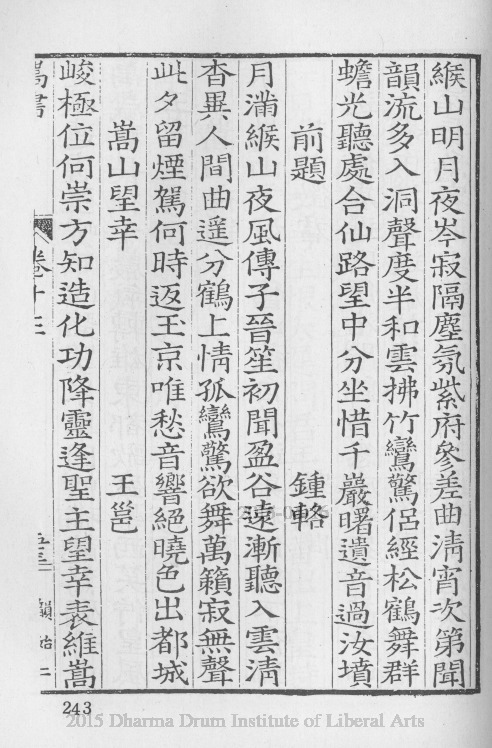 緱山明月夜岑寂隔塵氛紫府參差曲淸宵次第聞
韻流多入洞聲度半和雲拂竹鸞驚侶經松鶴舞群
蟾光聽處合仙路望中分坐惜千巖曙遺音過汝墳
前題 鍾輅
月滿緱山夜風傳子晉笙初聞盈谷遠漸聽入雲淸
杳異人間曲遥分鶴上情孤鸞驚欲舞萬籟寂無聲
此夕留煙駕何時返玉京唯愁音響絕曉色出都城
嵩山望幸 王邕
峻極位何崇方知造化功降靈逢聖主望幸表維嵩
嵩書 卷十三 韻始二
243
2015 Dharma Drum Institute of Liberal Arts